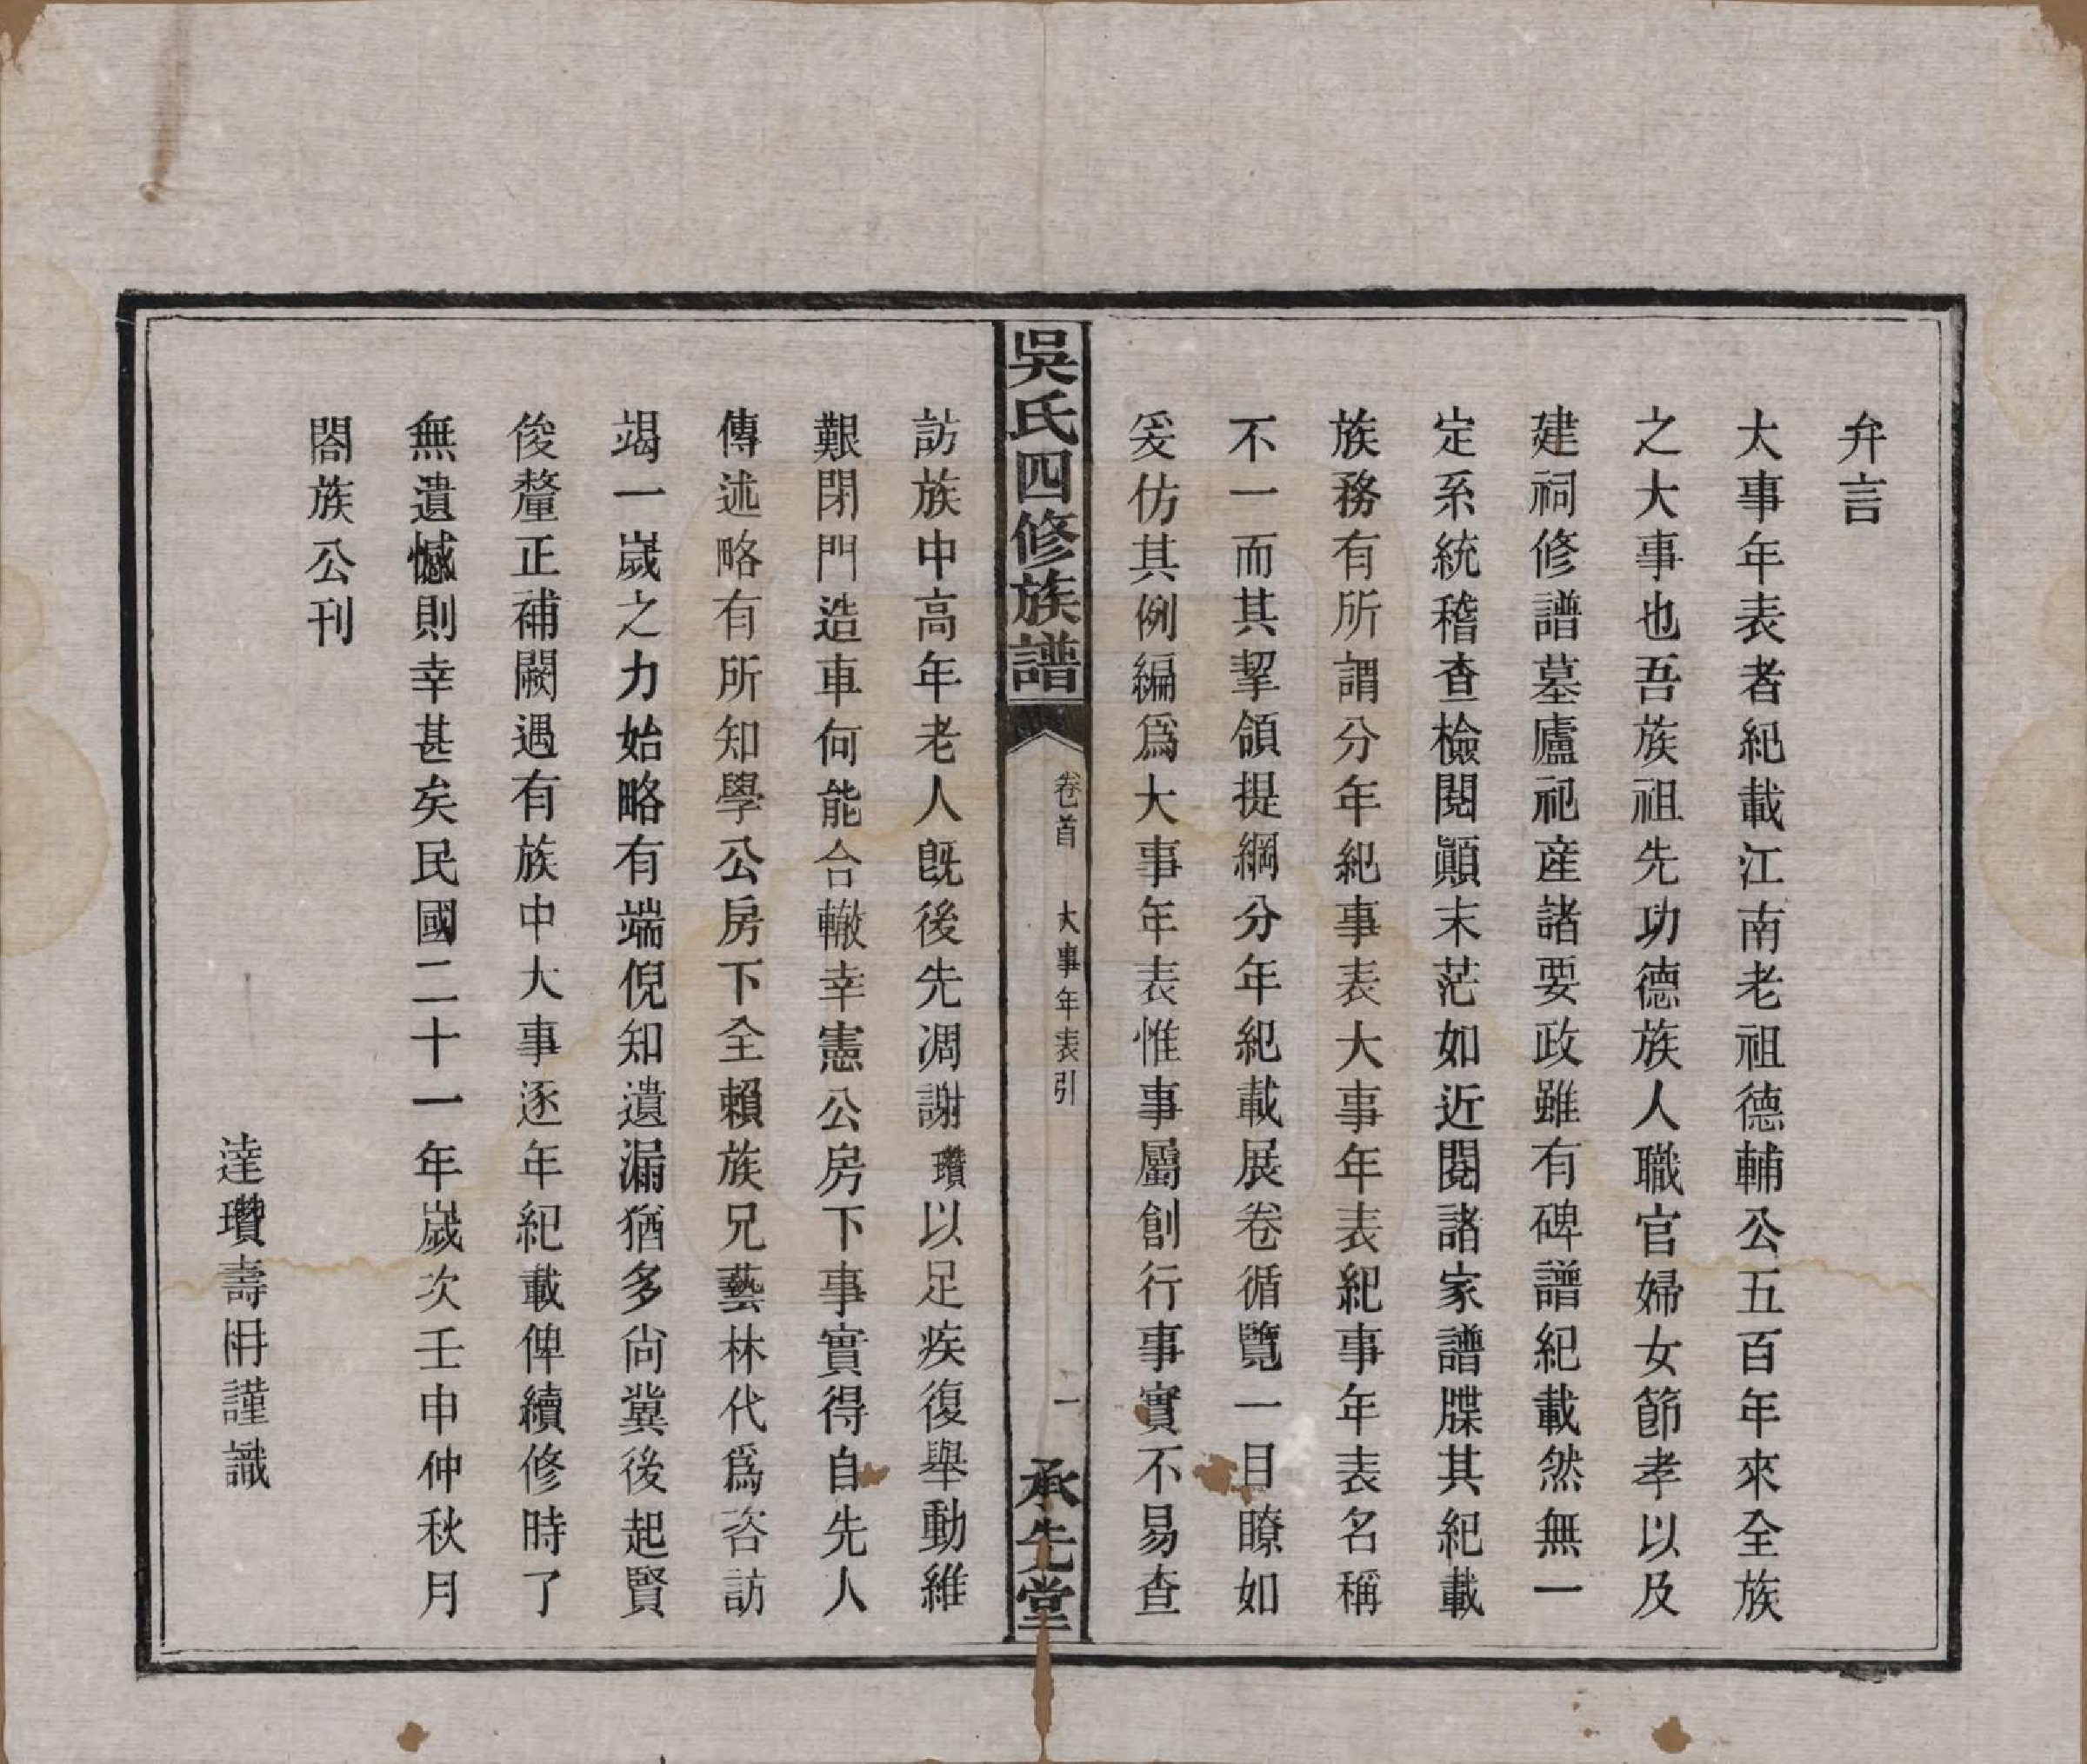 弁言
大事年表者紀載江南老祖德輔公五百年來全族
之大事也吾族祖先功德族人職官婦女節孝以及
建祠修譜墓廬祀産諸要政雖有碑譜紀載然無一
定系統稽查檢閱顚末茫如近閱諸家譜牒其紀載
族務有所謂分年紀事表大事年表紀事年表名稱
不一而其挈領提綱分年紀載展卷循覽一目瞭如
爰仿其例編爲大事年表惟事屬創行事實不易查
吳氏四修族譜
卷首 大事年表引
一
承先堂
訪族中高年老人旣後先凋謝瓚以足疾復舉動維
艱閉門造車何能合轍幸憲公房下事實得自先人
傳述略有所知學公房下全賴族兄藝林代爲咨訪
竭一歲之力始略有端倪知遺漏猶多尙冀後起賢
俊釐正補闕遇有族中大事逐年紀載俾續修時了
無遺憾則幸甚矣民國二十一年歲次壬申仲秋月
閤族公刊
達瓚壽枬謹識